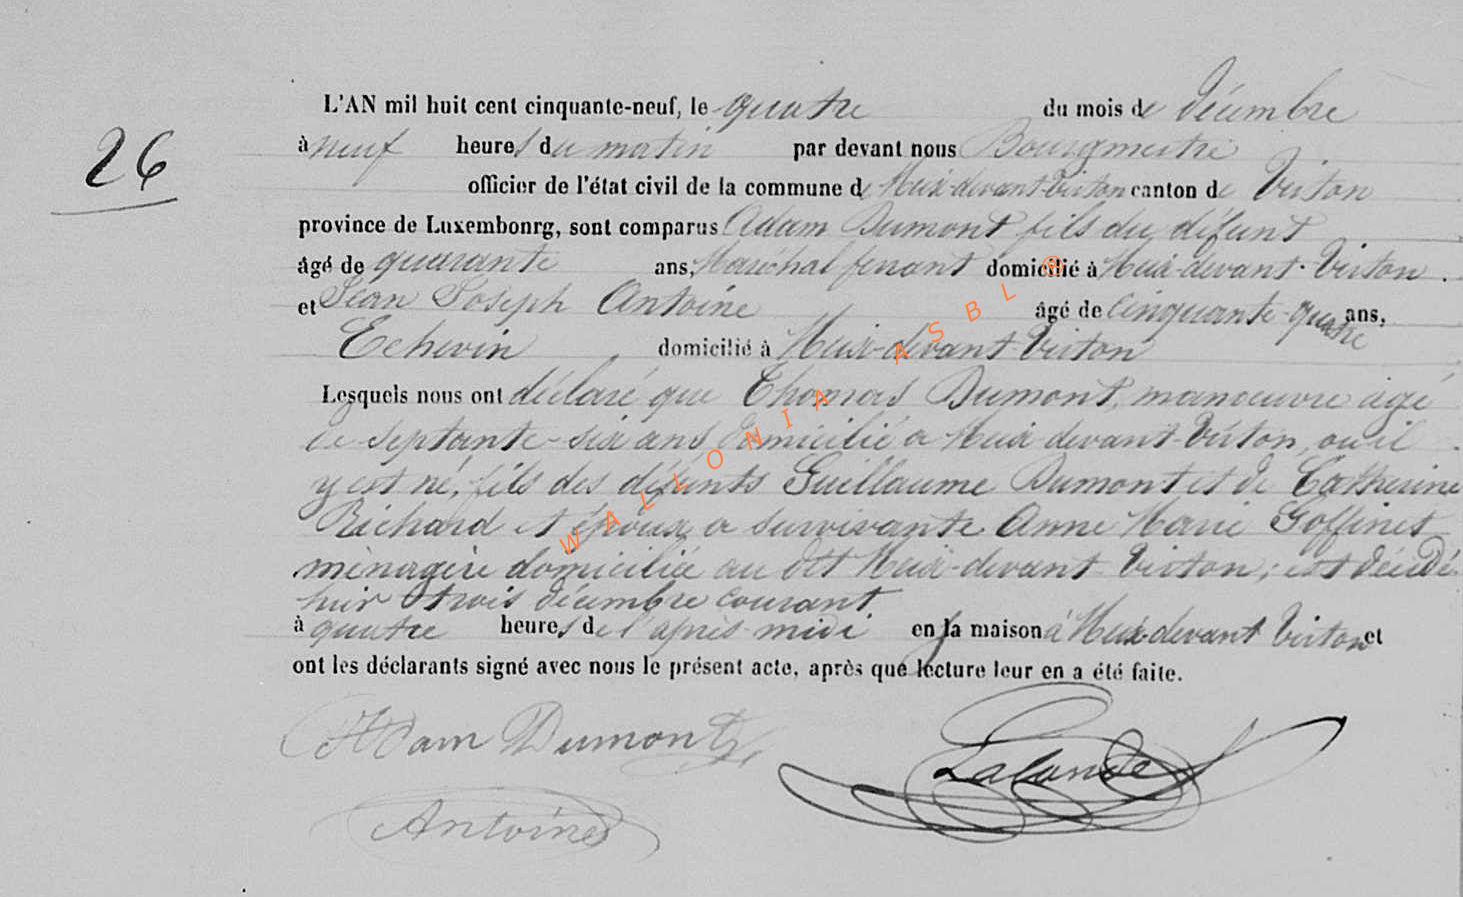 L'AN mil huit cent cinquante-neuf, le quatre du mois de décembre
26
à neuf heures du matin par devant nous Bourgmestre
officier de l'état civil de la commune de Meix-devant-Virton canton de Virton
province de Luxembonrg, sont comparus Adam Dumont fils du défunt
âgé de quarante ans, Maréchal ferrant domicilié à Meix-devant-Virton.
et Jean Joseph Antoine âgé de cinquante-quatre ans,
Echevin domicilié à Meix-devant Virton
Lesquels nous ont déclaré que Thomas Dumont, manoeuvre agé
de septante-six ans domicilié a Meix devant Virton, ou il
y est né, fils des défunts Guillaume Dumont et de Catherine
Richard et époux a survivante Anne Marie Goffinet
ménagère domiciliée au dit Meix-devant Virton; est décédé
hier trois décembre courant
à quatre heures de l'après midi en la maison à Meix-devant Virton et
ont les déclarants signé avec nous le présent acte, après que lecture leur en a été faite.
Adam Dumont
Lalande
Antoine
WALLONIA ASBL ®